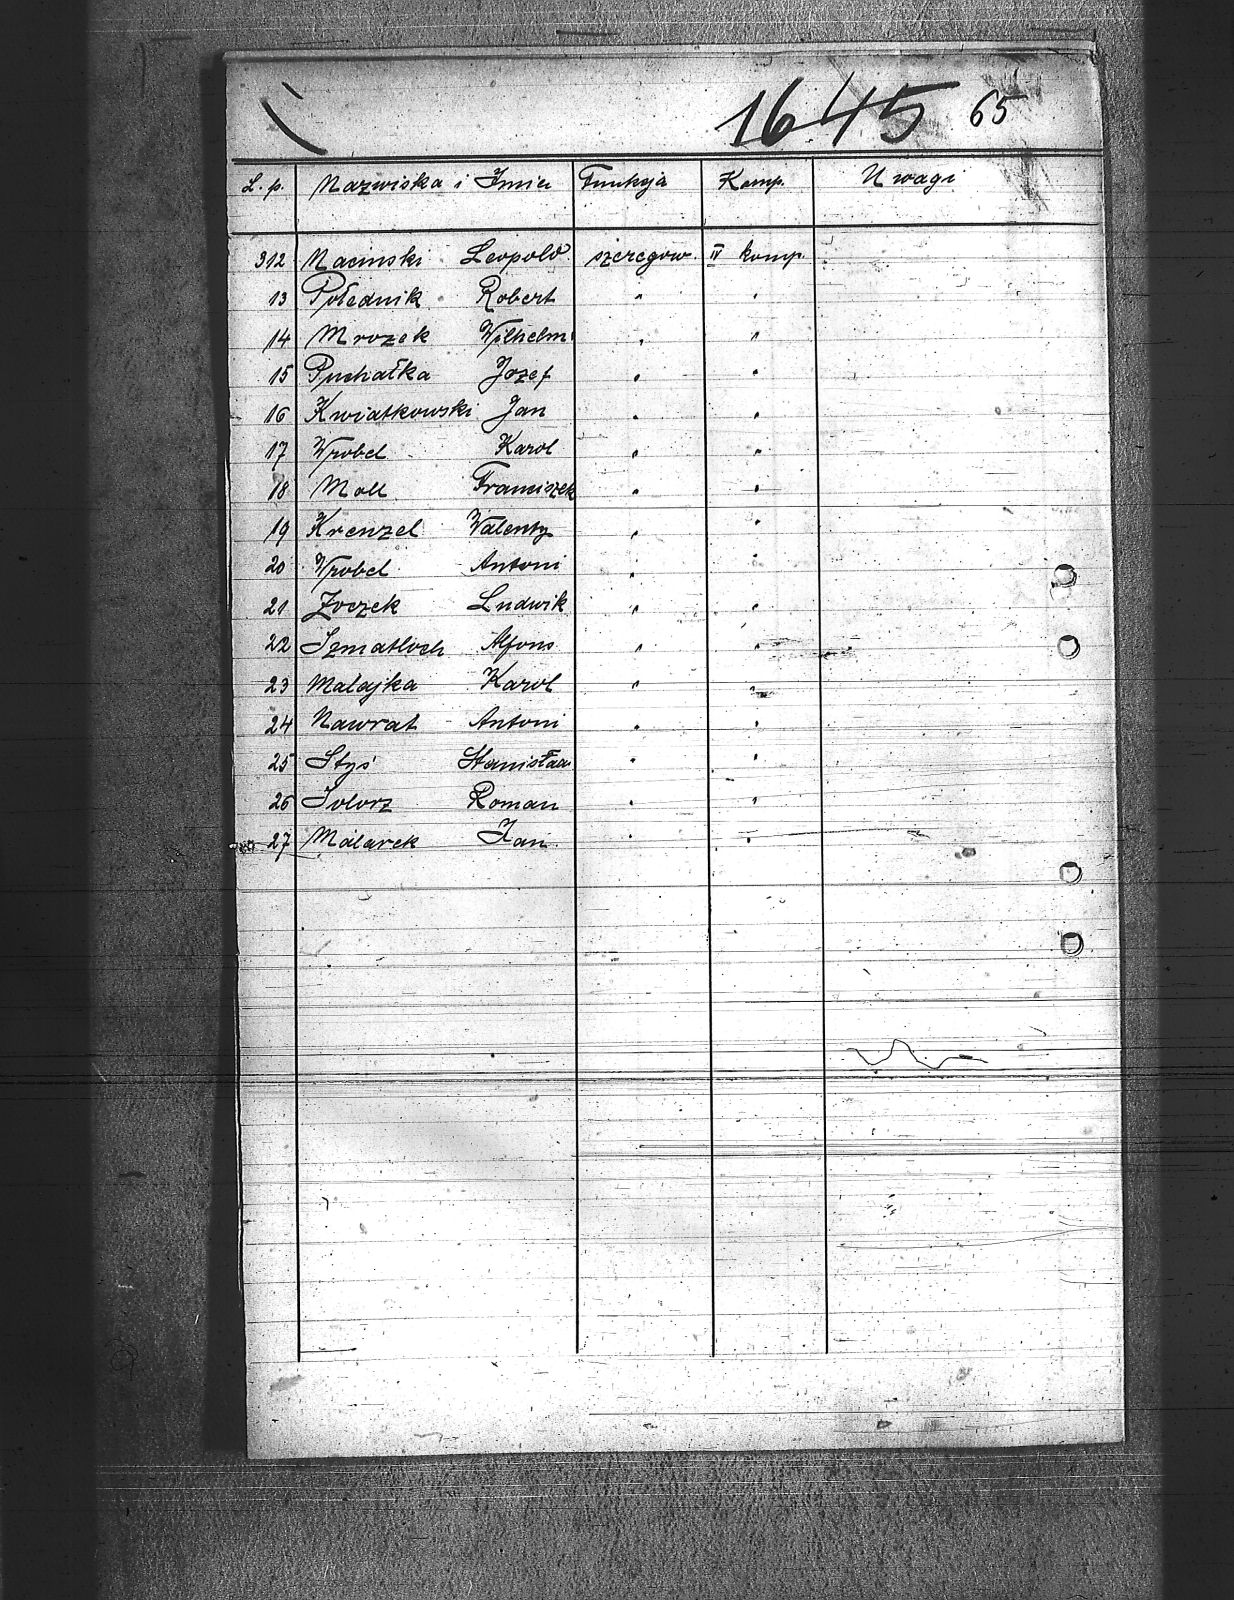 1645 65
L. p. Nazwiska i Imię Funkcja Komp. Uwagi
312 Macinski Leopold szeregow. IV komp.
13 Połednik Robert " "
14 Mrozek Wilhelm " "
15 Puchałka Jozef " "
16 Kwiatkowski Jan " "
17 Wrobel Karol " "
18 Moll Franciszek " "
19 Krenzel Walenty " "
20 Wrobel Antoni " "
21 Zoczek Ludwik " "
22 Szmatloch Alfons " "
23 Malajka Karol " "
24 Nawrat Antoni " "
25 Styś Stanisław " "
26 Solorz Roman " "
27 Malarek Jan " "